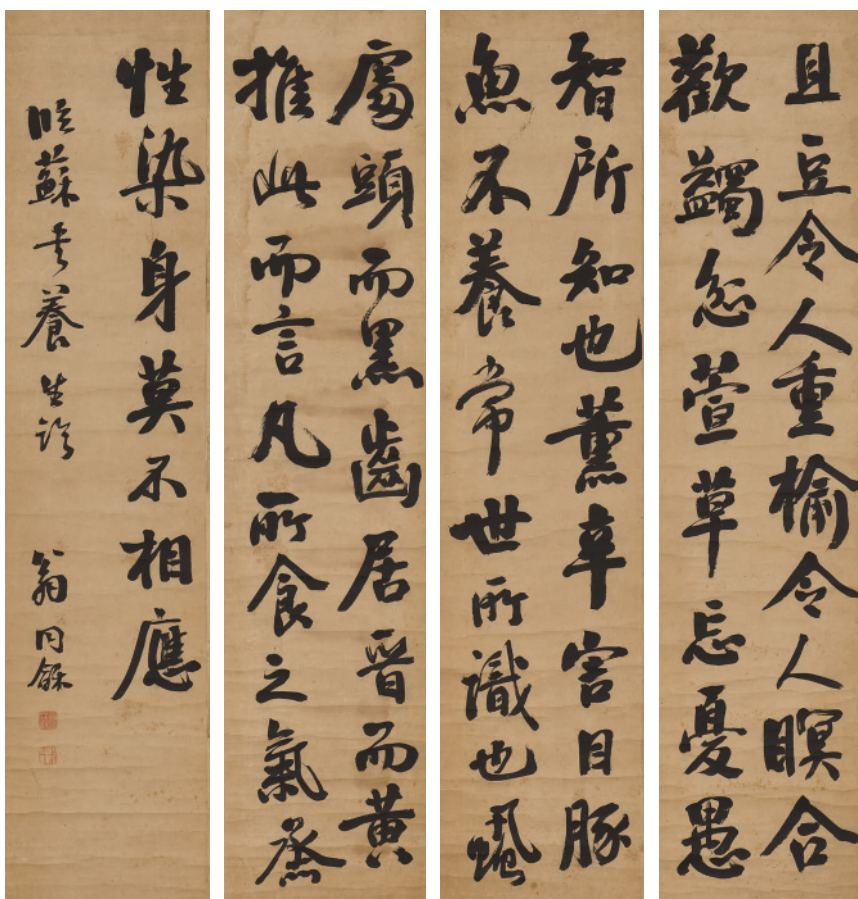 且豆令人重榆令人瞑合
歡蠲忿萱草忘憂愚
智所知也薰辛害目豚
魚不養常世所識也蝨
處頭而黑齒居晉而黃
推此而言凡所食之氣蒸
性染身莫不相應
臨蘇書養生論
翁同龢